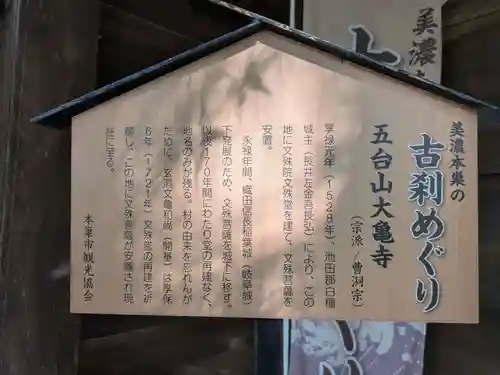 美濃本巣の
古刹めぐり
五台山大亀寺
(宗派/曹洞宗)
享禄元年(1528年)、池田郡白樫
城主(長井左金吾長弘)により、この
地に文殊院文殊堂を建て、文殊菩薩を
安置。
永禄年間、織田信長稲葉城(岐阜城)
下発展のため、文殊菩薩を城下に移す。
以後170年間にわたり堂の再建なく、
地名のみが残る。村の由来を忘れんが
ために、玄洞文亀和尚(開基)は享保
6年(1721年)文殊堂の再建を祈
願し、この地に文殊菩薩が安置され現
在に至る。
本巣市観光協会
美濃